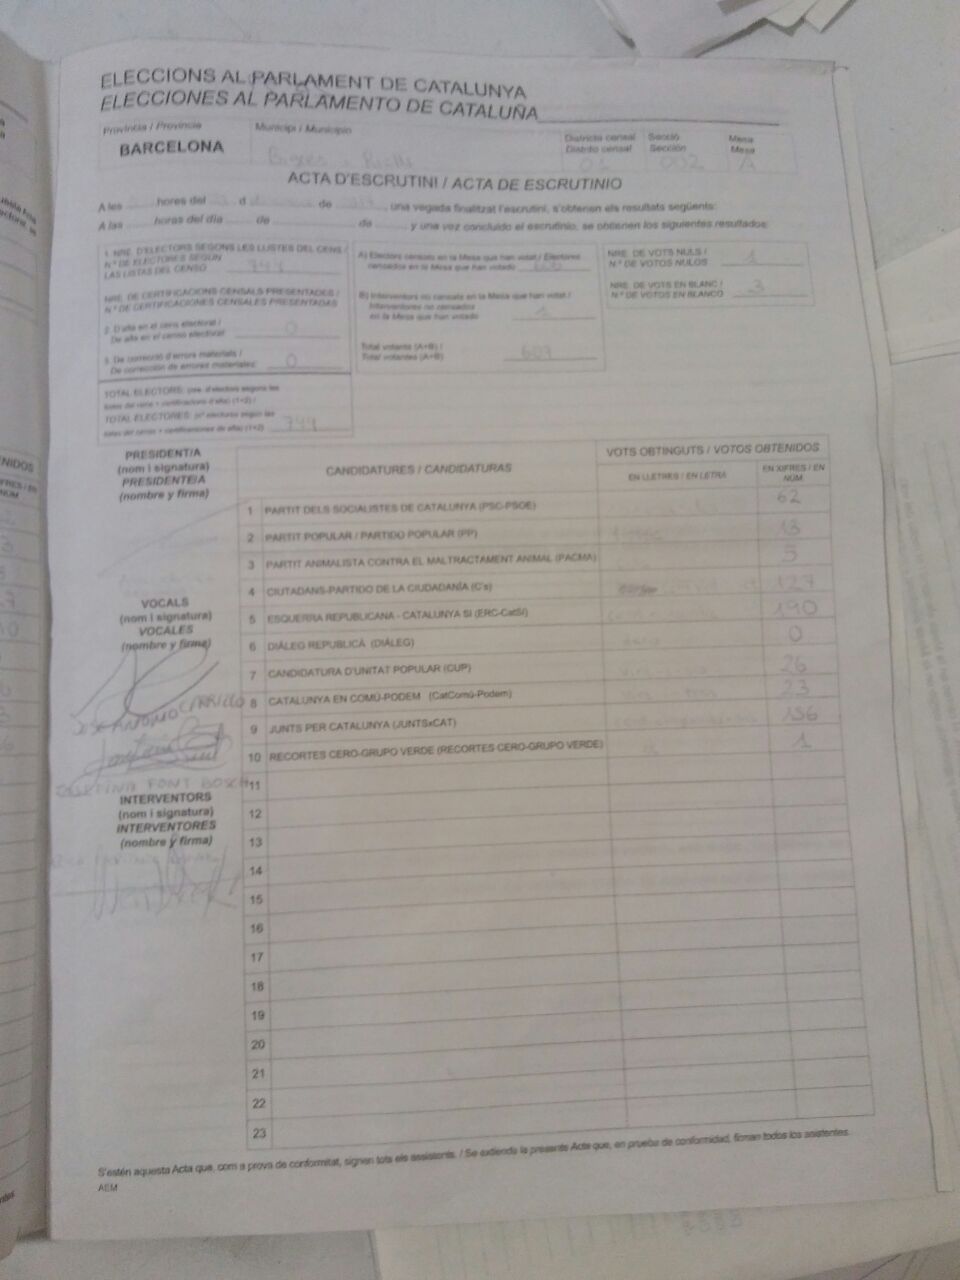 ELECCIONS AL PARLAMENT DE CATALUNYA
ELECCIONES AL PARLAMENTO DE CATALUÑA
Província / Provincia
BARCELONA
Municipi / Municipio
Bigues i Riells
Districte censal
Distrito censal
01
Secció
Sección
002
Mesa
Mesa
A
ACTA D'ESCRUTINI / ACTA DE ESCRUTINIO
A les hores del d de , una vegada finalitzat l'escrutini, s'obtenen els resultats següents:
A las horas del día de de y una vez concluido el escrutinio, se obtienen los siguientes resultados:
1. NRE. D'ELECTORS SEGONS LES LLISTES DEL CENS /
N.º DE ELECTORES SEGÚN
LAS LISTAS DEL CENSO 744
NRE. DE CERTIFICACIONS CENSALS PRESENTADES /
N.º DE CERTIFICACIONES CENSALES PRESENTADAS
2. D'alta en el cens electoral /
De alta en el censo electoral: 0
3. De correcció d'errors materials /
De corrección de errores materiales: 0
TOTAL ELECTORS: (nre. d'electors segons les
llistes del cens + certificacions d'alta) (1+2) /
TOTAL ELECTORES: (nº electores según las
listas del censo + certificaciones de alta) (1+2) 744
A) Electors censats en la Mesa que han votat / Electores
censados en la Mesa que han votado
B) Interventors no censats en la Mesa que han votat /
Interventores no censados
en la Mesa que han votado 1
Total votants (A+B) /
Total votantes (A+B) 607
NRE. DE VOTS NULS /
N.º DE VOTOS NULOS 1
NRE. DE VOTS EN BLANC /
N.º DE VOTOS EN BLANCO 3
PRESIDENT/A
(nom i signatura)
PRESIDENTE/A
(nombre y firma)
VOCALS
(nom i signatura)
VOCALES
(nombre y firma)
JOSE ANTONIO CARRILLO
JOSEFINA FONT BOSCH
INTERVENTORS
(nom i signatura)
INTERVENTORES
(nombre y firma)
CANDIDATURES / CANDIDATURAS
VOTS OBTINGUTS / VOTOS OBTENIDOS
EN LLETRES / EN LETRA
EN XIFRES / EN NÚM.
1 PARTIT DELS SOCIALISTES DE CATALUNYA (PSC-PSOE) 62
2 PARTIT POPULAR / PARTIDO POPULAR (PP) 13
3 PARTIT ANIMALISTA CONTRA EL MALTRACTAMENT ANIMAL (PACMA) 5
4 CIUTADANS-PARTIDO DE LA CIUDADANÍA (C's) 127
5 ESQUERRA REPUBLICANA - CATALUNYA SÍ (ERC-CatSí) 190
6 DIÀLEG REPUBLICÀ (DIÀLEG) 0
7 CANDIDATURA D'UNITAT POPULAR (CUP) 26
8 CATALUNYA EN COMÚ-PODEM (CatComú-Podem) 23
9 JUNTS PER CATALUNYA (JUNTSxCAT) 156
10 RECORTES CERO-GRUPO VERDE (RECORTES CERO-GRUPO VERDE) 1
11
12
13
14
15
16
17
18
19
20
21
22
23
S'estén aquesta Acta que, com a prova de conformitat, signen tots els assistents. / Se extiende la presente Acta que, en prueba de conformidad, firman todos los asistentes.
AEM